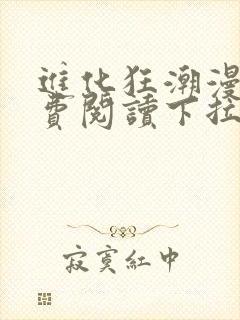 進化狂潮漫
費閱讀下拉
寂寞紅中